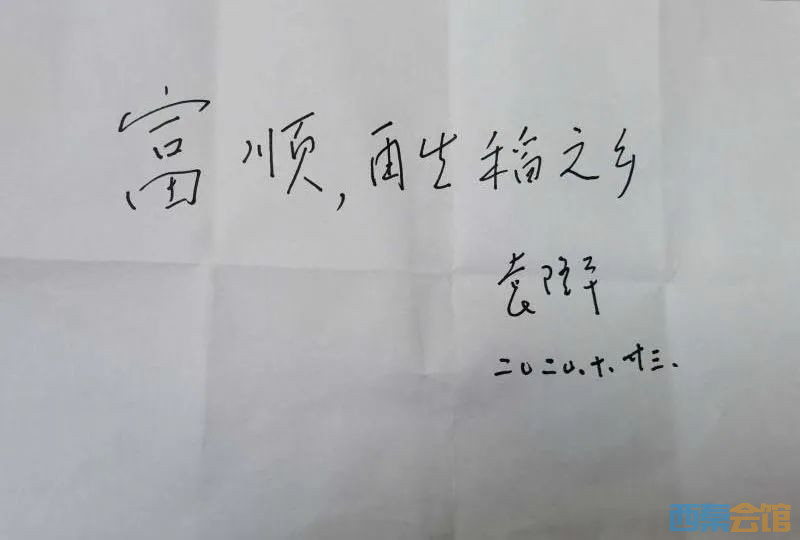 富顺,再生稻之乡
袁隆平
二〇二〇.十.廿三.
西蔡会馆